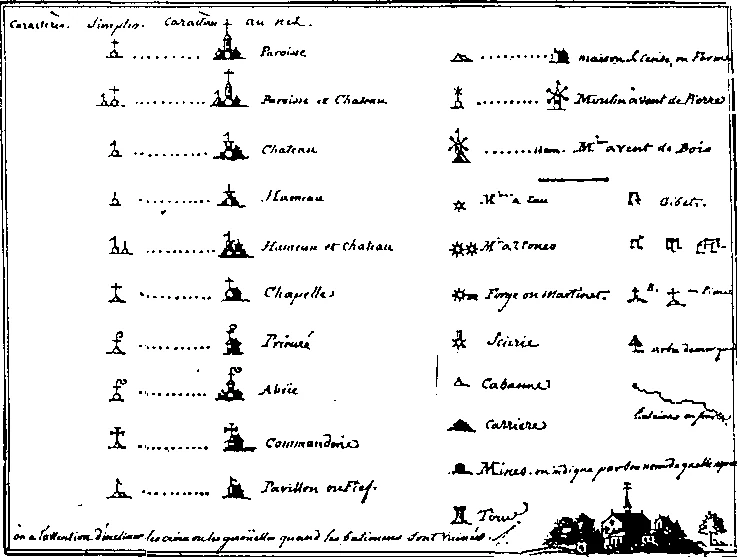 Caractères. Simples. Caractères au net.
Paroisse
Paroisse et Chateau
Chateau
Hameau
Hameau et Chateau
Chapelle
Prieuré
Abeïe
Commanderie
Pavillon ou Fief.
maison ou Ferme
Moulin avent de Pierre
M.in avent de Bois
M.in a Eau
M.in a 2 Roues
Forge ou Martinet.
Scierie
Cabanne
Carriere
Mines. on indique par son nom de quelle espece
Tour
Gibet.
B.
Arbre de marque
on a l'attention d'incliner les croix ou les girouettes quand les batimens sont ruinés